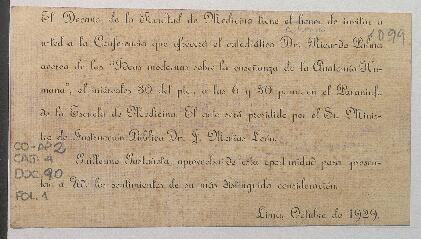 El Decano de la Facultad de Medicina tiene el honor de invitar a
usted a la Conferencia que ofrecerá el catedrático Dr. Ricardo Palma
acerca de las "Ideas modernas sobre la enseñanza de la Anatomía Hu-
mana", el miércoles 30 del pte., a las 6 y 30 p.m. en el Paraninfo
de la Escuela de Medicina. El acto será presidido por el Sr. Minis-
tro de Instrucción Pública Dr. J. Matías León.
Guillermo Gastañeta, aprovecha de esta oportunidad para presen-
tar a Ud. los sentimientos de su más distinguida consideración.
Lima, Octubre de 1929.
CO-AP2
CAJ-4
DOC.90
FOL.1